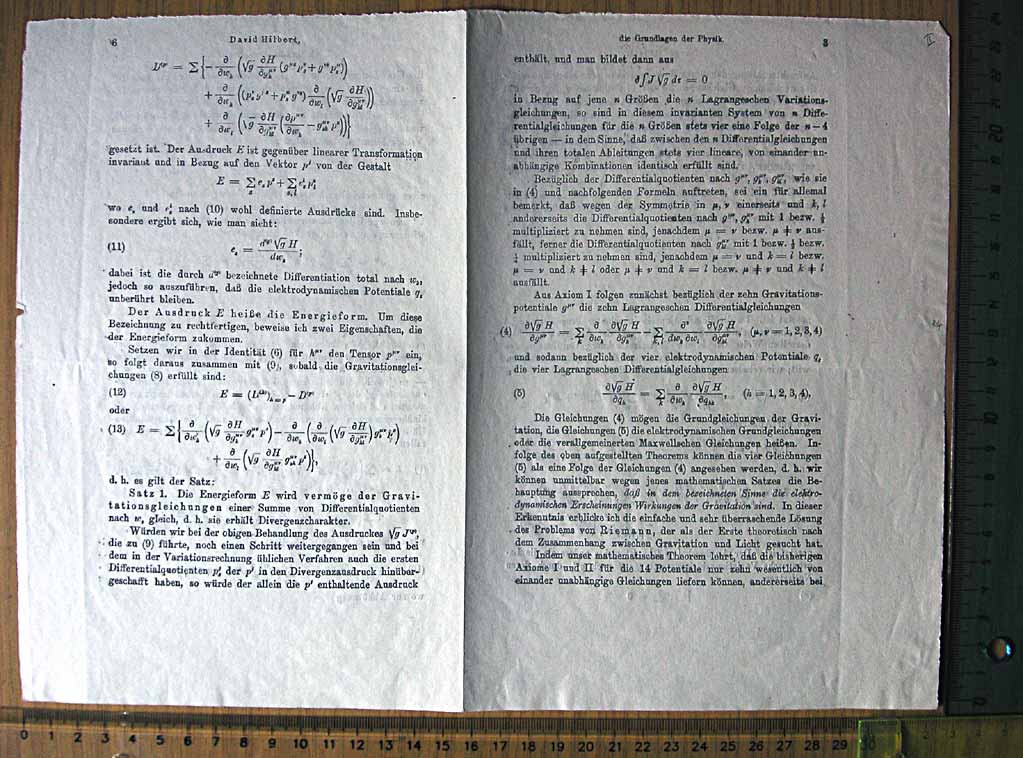 6 David Hilbert,
L^{μν} = Σ{ − ∂/∂w_k (√g ∂H/∂g_k^{μν} (g^{μs} p_s^ν + g^{νs} p_s^μ))
gesetzt ist. Der Ausdruck E ist gegenüber linearer Transformation
invariant und in Bezug auf den Vektor p^s von der Gestalt
E = Σ e_s p^s + Σ e_s^l p_l^s
wo e_s und e_s^l nach (10) wohl definierte Ausdrücke sind. Insbe-
sondere ergibt sich, wie man sieht:
(11)
dabei ist die durch bezeichnete Differentiation total nach w_s,
jedoch so auszuführen, daß die elektrodynamischen Potentiale q_s
unberührt bleiben.
Der Ausdruck E heiße die Energieform. Um diese
Bezeichnung zu rechtfertigen, beweise ich zwei Eigenschaften, die
der Energieform zukommen.
Setzen wir in der Identität (6) für h^{μν} den Tensor p^{μν} ein,
so folgt daraus zusammen mit (9), sobald die Gravitationsglei-
chungen (8) erfüllt sind:
(12)
oder
(13)
d. h. es gilt der Satz:
Satz 1. Die Energieform E wird vermöge der Gravi-
tationsgleichungen einer Summe von Differentialquotienten
nach w_s gleich, d. h. sie erhält Divergenzcharakter.
Würden wir bei der obigen Behandlung des Ausdruckes √g J^{(p)},
die zu (9) führte, noch einen Schritt weitergegangen sein und bei
dem in der Variationsrechnung üblichen Verfahren auch die ersten
Differentialquotienten p_l^s der p^s in den Divergenzausdruck hinüber-
geschafft haben, so würde der allein die p^s enthaltende Ausdruck
die Grundlagen der Physik. 3
II
enthält, und man bildet dann aus
δ∫J√g dτ = 0
in Bezug auf jene n Größen die n Lagrangeschen Variations-
gleichungen, so sind in diesem invarianten System von n Diffe-
rentialgleichungen für die n Größen stets vier eine Folge der n − 4
übrigen — in dem Sinne, daß zwischen den n Differentialgleichungen
und ihren totalen Ableitungen stets vier lineare, von einander un-
abhängige Kombinationen identisch erfüllt sind.
Bezüglich der Differentialquotienten nach g^{μν}, g_k^{μν}, g_{kl}^{μν}, wie sie
in (4) und nachfolgenden Formeln auftreten, sei ein für allemal
bemerkt, daß wegen der Symmetrie in μ, ν einerseits und k, l
andererseits die Differentialquotienten nach g^{μν}, g_k^{μν} mit 1 bezw. ½
multipliziert zu nehmen sind, jenachdem μ = ν bezw. μ ≠ ν aus-
fällt, ferner die Differentialquotienten nach g_{kl}^{μν} mit 1 bezw. ½ bezw.
¼ multipliziert zu nehmen sind, jenachdem μ = ν und k = l bezw.
μ = ν und k ≠ l oder μ ≠ ν und k = l bezw. μ ≠ ν und k ≠ l
ausfällt.
Aus Axiom I folgen zunächst bezüglich der zehn Gravitations-
potentiale g^{μν} die zehn Lagrangeschen Differentialgleichungen
(4) ∂√g H/∂g^{μν} = Σ_k ∂/∂w_k ∂√g H/∂g_k^{μν} − Σ_{k,l} ∂²/∂w_k ∂w_l ∂√g H/∂g_{kl}^{μν}, (μ, ν = 1, 2, 3, 4)
und sodann bezüglich der vier elektrodynamischen Potentiale q_s
die vier Lagrangeschen Differentialgleichungen
(5) ∂√g H/∂q_h = Σ_k ∂/∂w_k ∂√g H/∂q_{hk}, (h = 1, 2, 3, 4),
Die Gleichungen (4) mögen die Grundgleichungen der Gravi-
tation, die Gleichungen (5) die elektrodynamischen Grundgleichungen
oder die verallgemeinerten Maxwellschen Gleichungen heißen. In-
folge des oben aufgestellten Theorems können die vier Gleichungen
(5) als eine Folge der Gleichungen (4) angesehen werden, d. h. wir
können unmittelbar wegen jenes mathematischen Satzes die Be-
hauptung aussprechen, daß in dem bezeichneten Sinne die elektro-
dynamischen Erscheinungen Wirkungen der Gravitation sind. In dieser
Erkenntnis erblicke ich die einfache und sehr überraschende Lösung
des Problems von Riemann, der als der Erste theoretisch nach
dem Zusammenhang zwischen Gravitation und Licht gesucht hat.
Indem unser mathematisches Theorem lehrt, daß die bisherigen
Axiome I und II für die 14 Potentiale nur zehn wesentlich von
einander unabhängige Gleichungen liefern können, andererseits bei
0 1 2 3 4 5 6 7 8 9 10 11 12 13 14 15 16 17 18 19 20 21 22 23 24 25 26 27 28 29 30